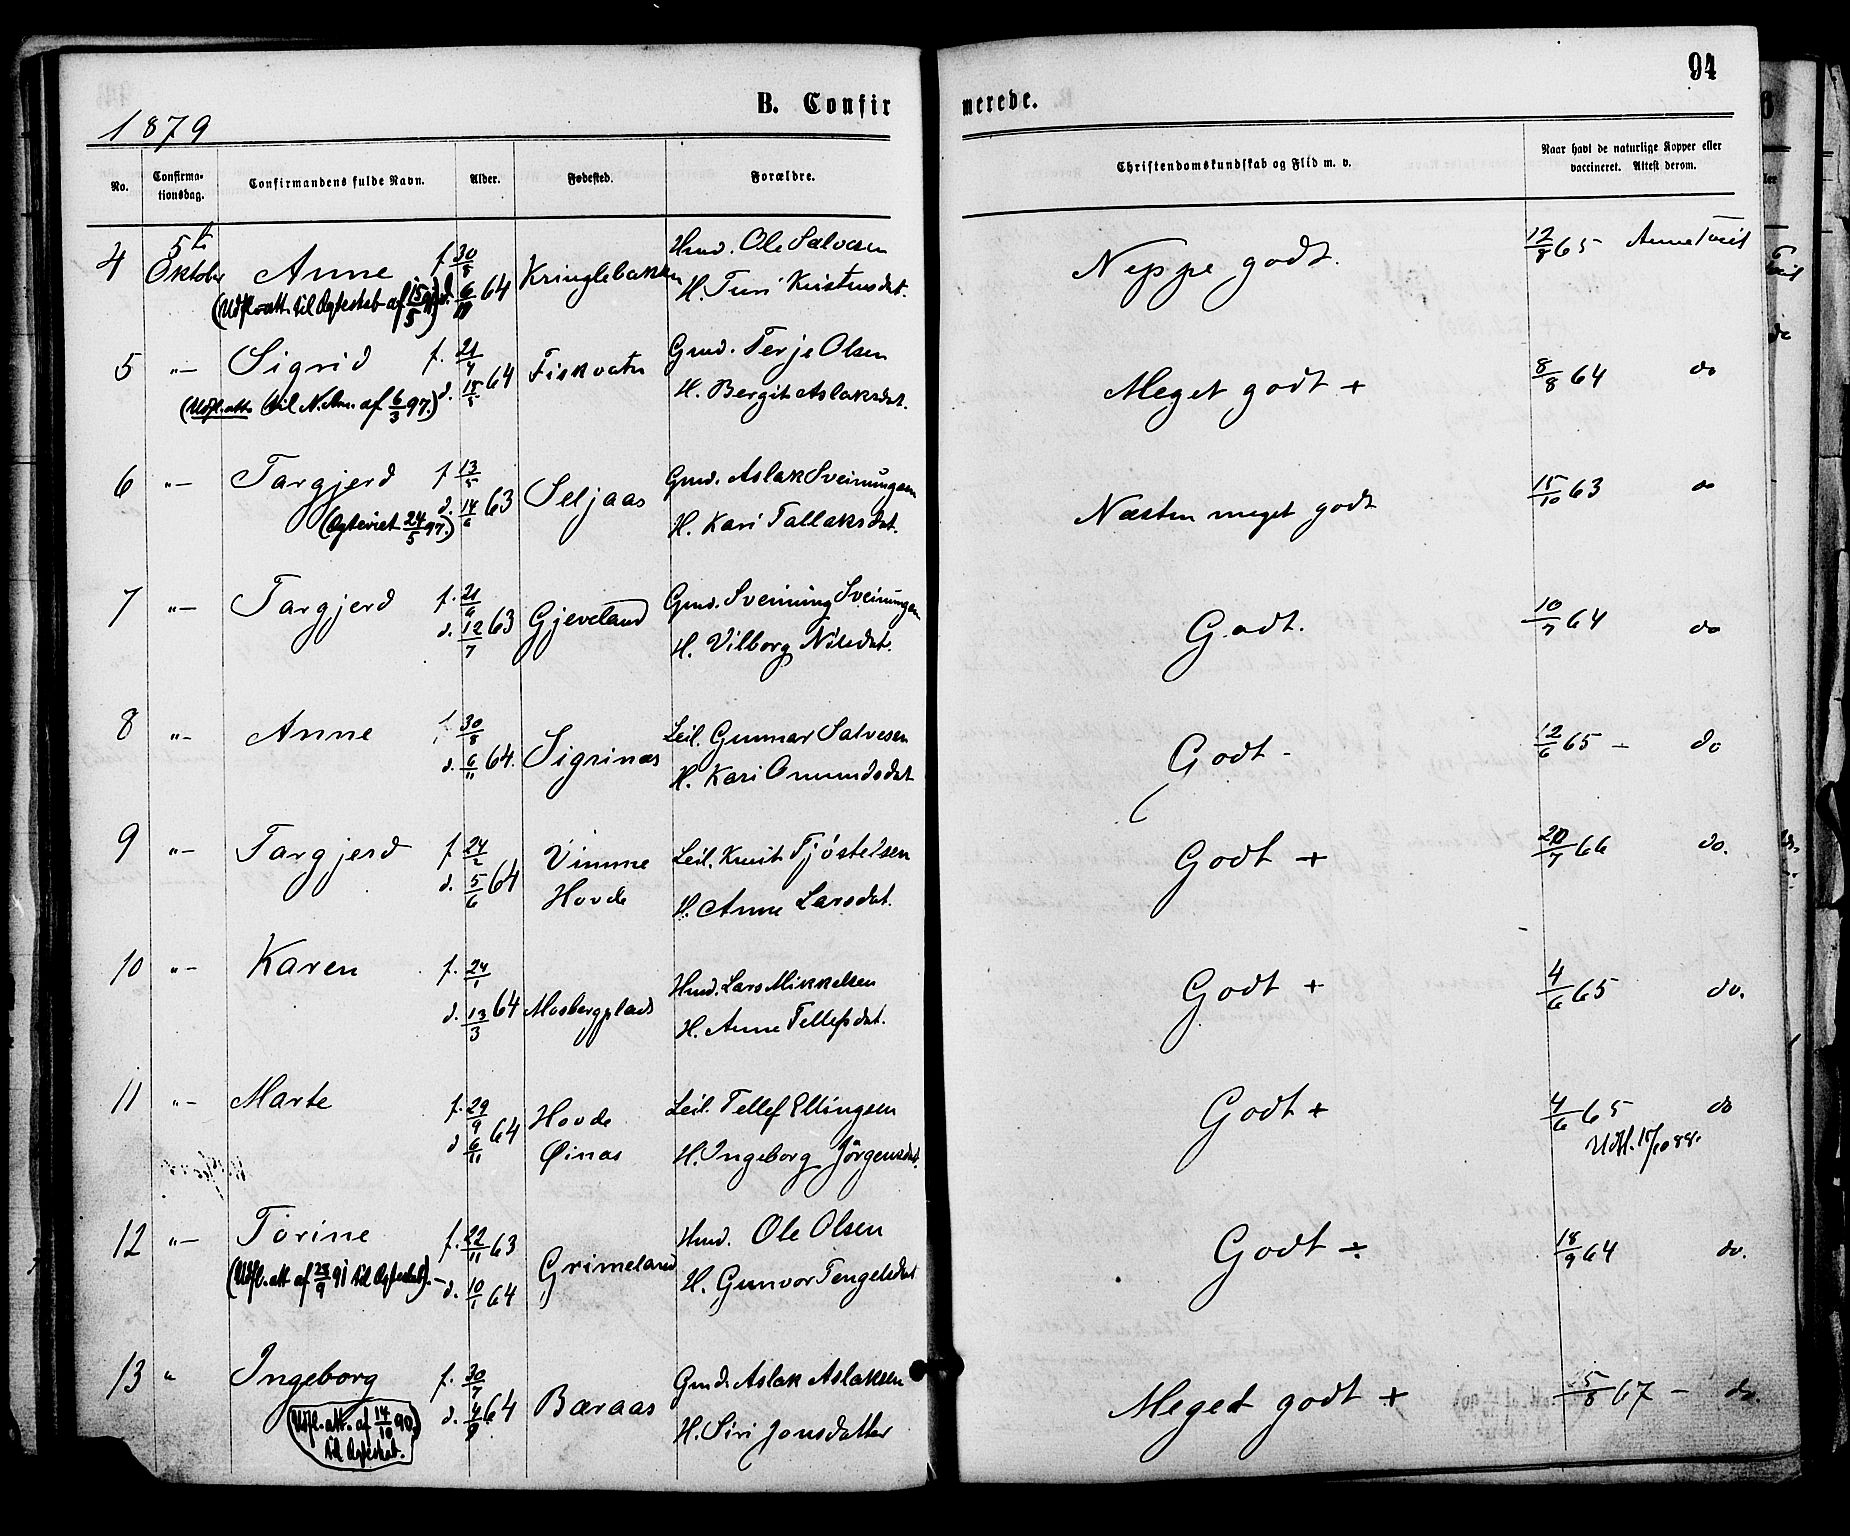 94
1879
B. Confir
merede.
No. Confirma-tionsdag. Confirmandens fulde Navn. Alder. Fødested. Forældre. Christendomskundskab og Flid m. v. Naar havt de naturlige Kopper eller vaccineret. Attest derom.
4 5te Oktober Anne f. 30/8 d. 64 Kringlebakken Hmd. Ole Salvesen 12/8 65 Anne Tveit
H. Turi Kristensdat. Neppe godt.
(Udfl.att. til Ægteskab af 15/5
5 "– Sigrid f. 21/4 d. 64 Fiskvatn Gmd. Terje Olsen 8/8 64 do
H. Bergit Aslaksdat. Meget godt +
(Udfl.att. til N. Am. af 6/3 97.)
6 "– Targjerd f 13/5 d. 14/6 63 Seljaas Gmd. Aslak Sveinungsen 15/10 63 do
H. Kari Tallaksdat. Næsten meget godt
(Ægteviet 24/5 97.)
7 "– Targjerd f. 21/6 d. 12/7 63 Gjeveland Gmd. Sveinung Sveinungsen 10/7 64 do
H. Vilborg Nilsdat. Godt.
8 "– Anne f. 30/8 d. 6/11 64. Sigrinæs Leil. Gunnar Salvesen 12/6 65 – do
H. Kari Omundsdat Godt -
9 "– Targjerd f. 24/2 d. 5/6 64 Vimme Leil. Knut Tjøstelsen 20/7 66 do.
Hovde H. Anne Larsdat. Godt +
10 "– Karen f. 24/1 d. 13/3 64 Mosbergplads Hmd. Lars Mikkelsen 4/6 65 do.
H. Anne Tellefsdat. Godt +
11 "– Marte f. 29/9 d 6/11 64 Hovde Leil. Tellef Ellingsen 4/6 65 do
Øinas H. Ingeborg Jörgensdat. Godt + Udfl. 15/10 88.
12 "– Torine f. 22/11 63 Grimeland Hmd. Ole Olsen 18/9 64 do.
(Udfl.att af 28/9 91 til Ægteskab). – d. 10/1 64 H. Gunvor Tengelsdat Godt ÷
13 " Ingeborg f. 30/7 d. 4/9 64 Bæraas Gmd. Aslak Aslaksen 5/8 67 – do.
H. Siri Jonsdatter Meget godt +
(Udfl.att. af 14/10 90.
til Ægteskab.